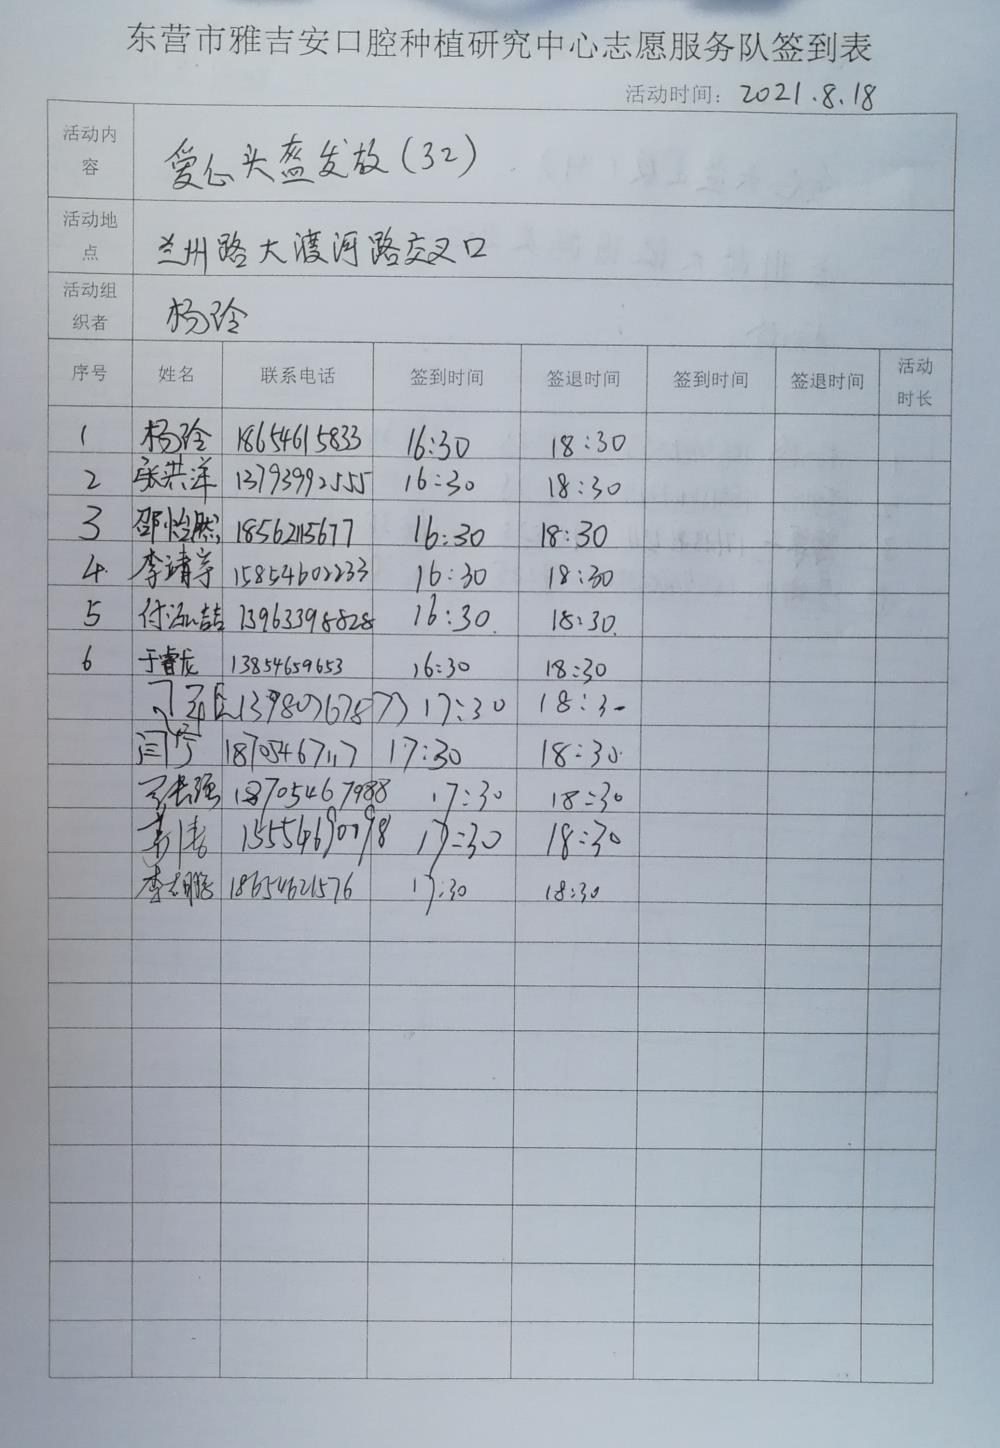 东营市雅吉安口腔种植研究中心志愿服务队签到表
活动时间: 2021.8.18
活动内容 爱心头盔发放(32)
活动地点 兰州路大渡河路交叉口
活动组织者 杨玲
序号 姓名 联系电话 签到时间 签退时间 签到时间 签退时间 活动时长
1 杨玲 18654615833 16:30 18:30
2 张洪洋 13793992555 16:30 18:30
3 邵怡然 18562115677 16:30 18:30
4 李靖宇 15854602233 16:30 18:30
5 付泓喆 13963398828 16:30 18:30
6 于睿龙 13854659653 16:30 18:30
17:30 18:30
闫 18705467117 17:30 18:30
长强 18705467988 17:30 18:30
17:30 18:30
李志鹏 18654621576 17:30 18:30